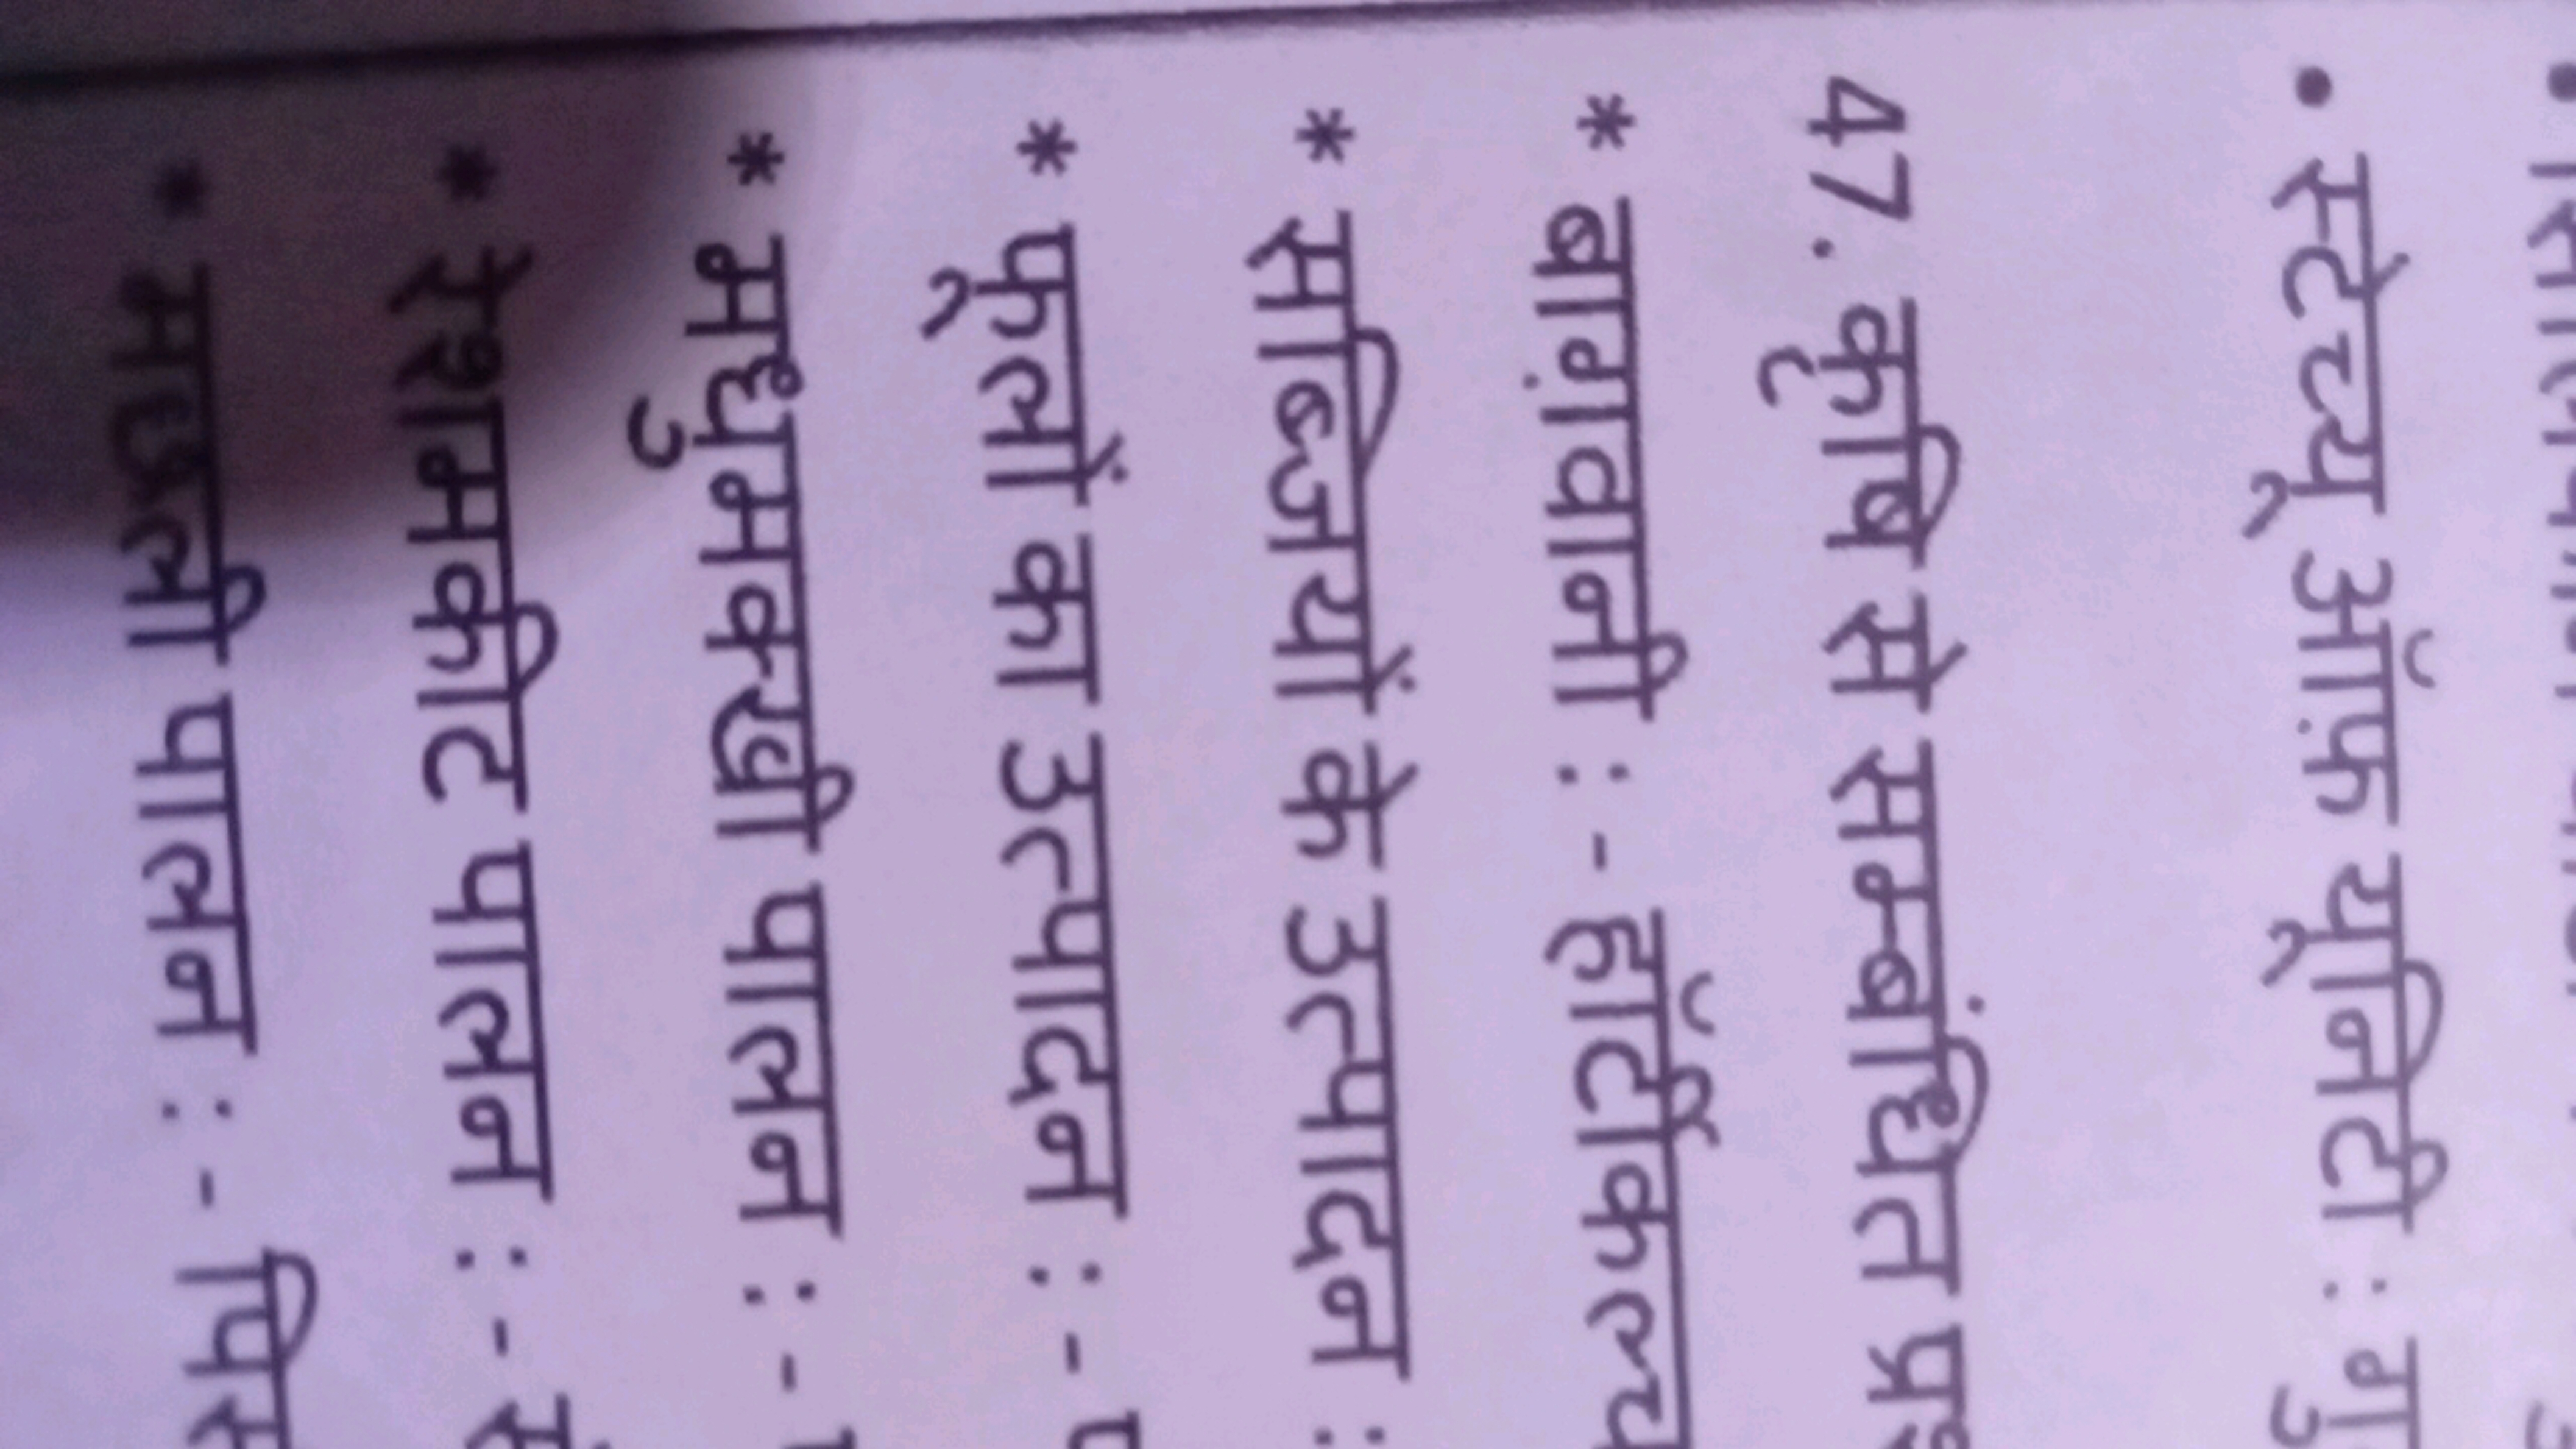 • स्टेच्यू ऑफ़ यूनिटी : गु
47. कृषि से सम्बंधित प्र
* बाग़वानी : - हॉर्टीकल्च
* सब्जियों के उत्पादन :
* फूलों का उत्पादन : -
* मधुमक्खी पालन : -
* रेशमकीट पालन : -
* मछली पालन : - पिस